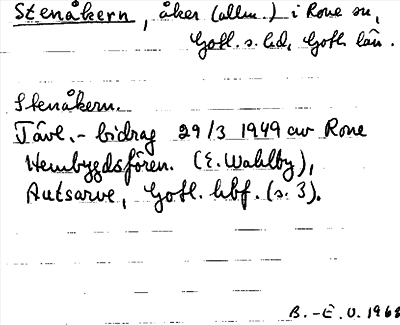 Stenåkern, åker (allm.) i Rone sn,
Gotl. s. hd, Gotl. län.
Stenåkern.
Tävl.-bidrag 29/3 1949 av Rone
Hembygdsfören. (E. Wahlby),
Autsarve, Gotl. hbf. (s. 3).
B.-E. O. 1968